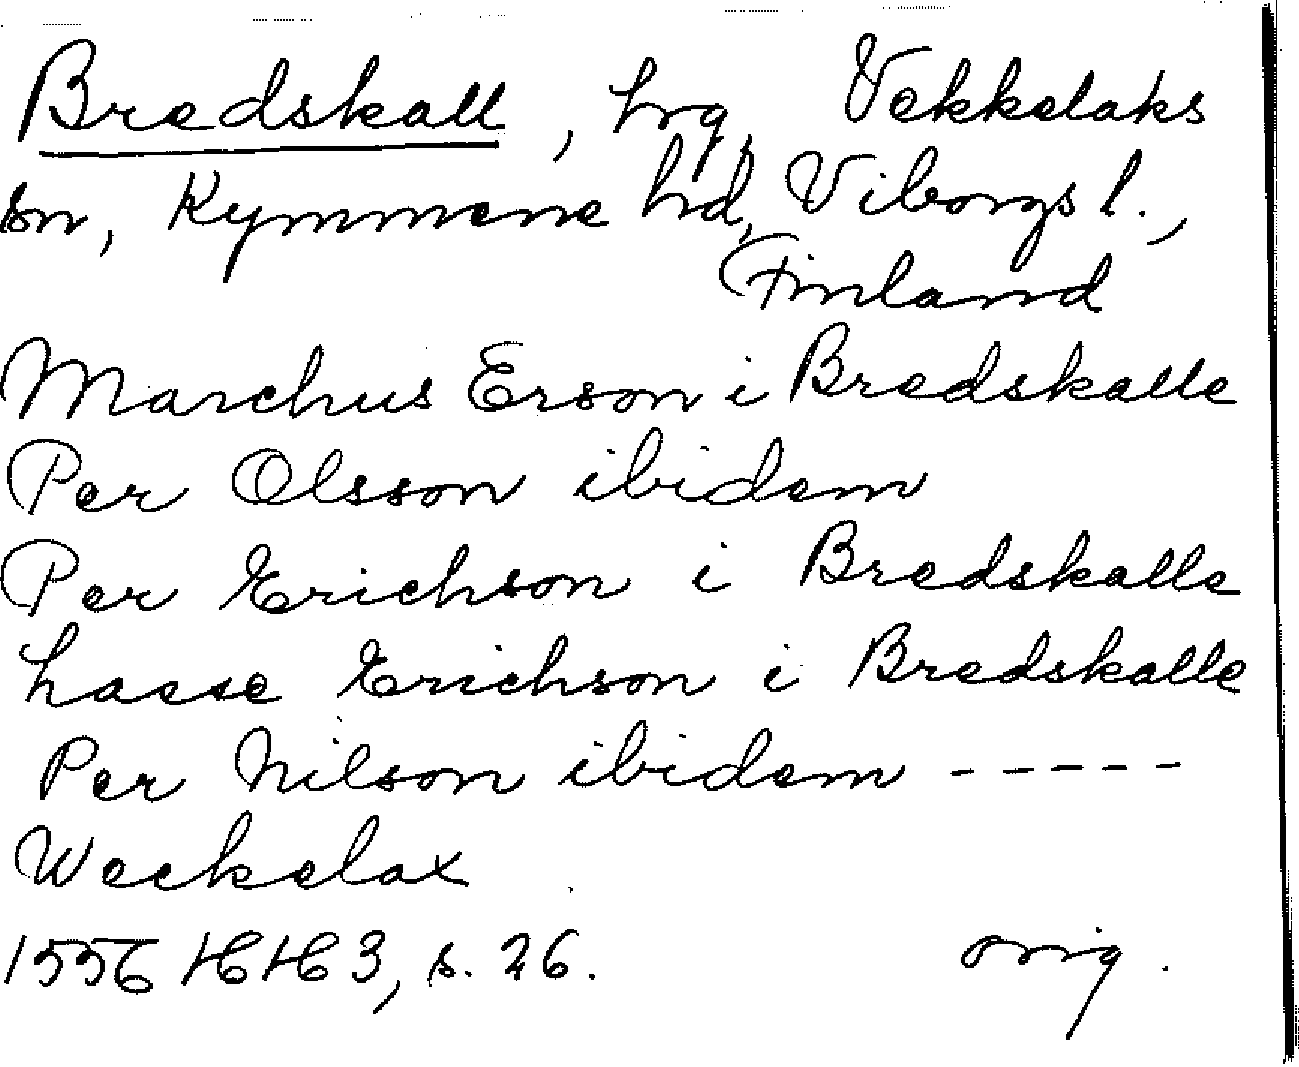 Bredskall, hrg, Vekkelaks
sn, Kymmene hd, Viborgs l.,
Finland
Marchus Erson i Bredskalle
Per Olsson ibidem
Per Erichson i Bredskalle
Lasse Erichson i Bredskalle
Per Nilson ibidem -----
Weckelax
1556 HH 3, s. 26. orig.